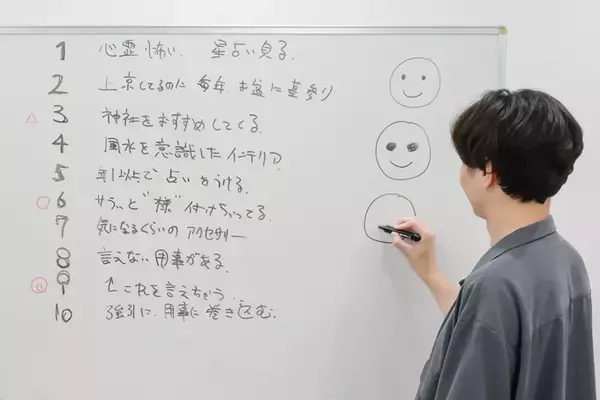 1 心霊怖い、星占い見る.
2 上京してるのに毎年お盆に墓参り
△ 3 神社をおすすめしてくる.
4 風水を意識したインテリア.
5 年1以上で占いをうける.
○ 6 サラッと"様"付けちゃってる.
7 気になるくらいのアクセサリー
8 言えない用事がある.
◎ 9 ↑これを言えちゃう.
10 強引に、用事に巻き込む.